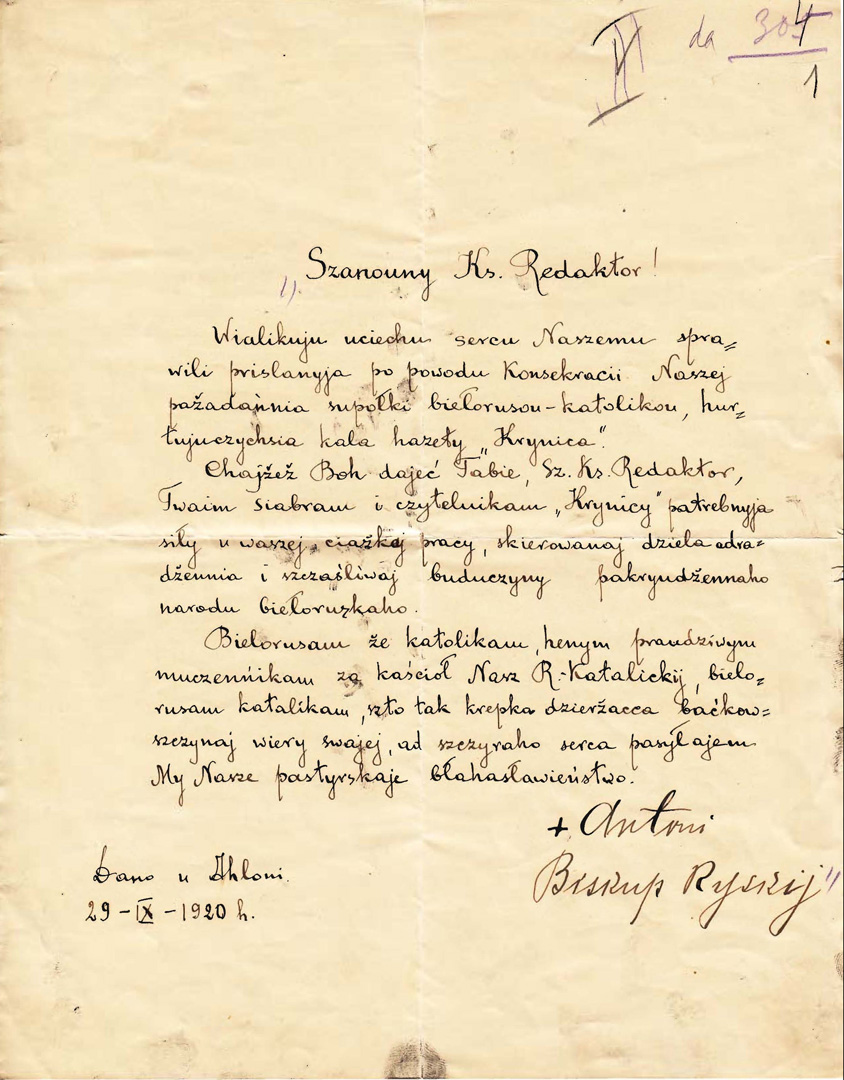 II da 304
1
„Szanouny Ks. Redaktor!
Wialikuju uciechu sercu Naszemu spra=
wili prisłanyja po powodu Konsekracii Naszej
pažadańnia supółki biełorusou-katolikou, hur=
tujuczychsia kala hazety „Krynica".
Chajżeż Boh dajeć Tabie, Sz. Ks. Redaktor,
Twaim siabram i czytelnikam „Krynicy" patrebnyja
siły u waszej ciażkoj pracy, skierowanaj dziela adra=
dżennia i szczaśliwaj buduczyny pakryudżennaho
narodu biełoruzkaho.
Biełorusam że katolikam, henym praudziwym
muczennikam za kaścioł Nasz R.-Katalickij, bieło=
rusam katalikam, szto tak krepka dzierżacca baćkow=
szczynaj wiery swajej, ad szczyraho serca pasyłajem
My Nasze pastyrskaje błahasławieństwo.
+ Antoni
Biskup Ryskij"
Dano u Ahłoni.
29-IX-1920 h.